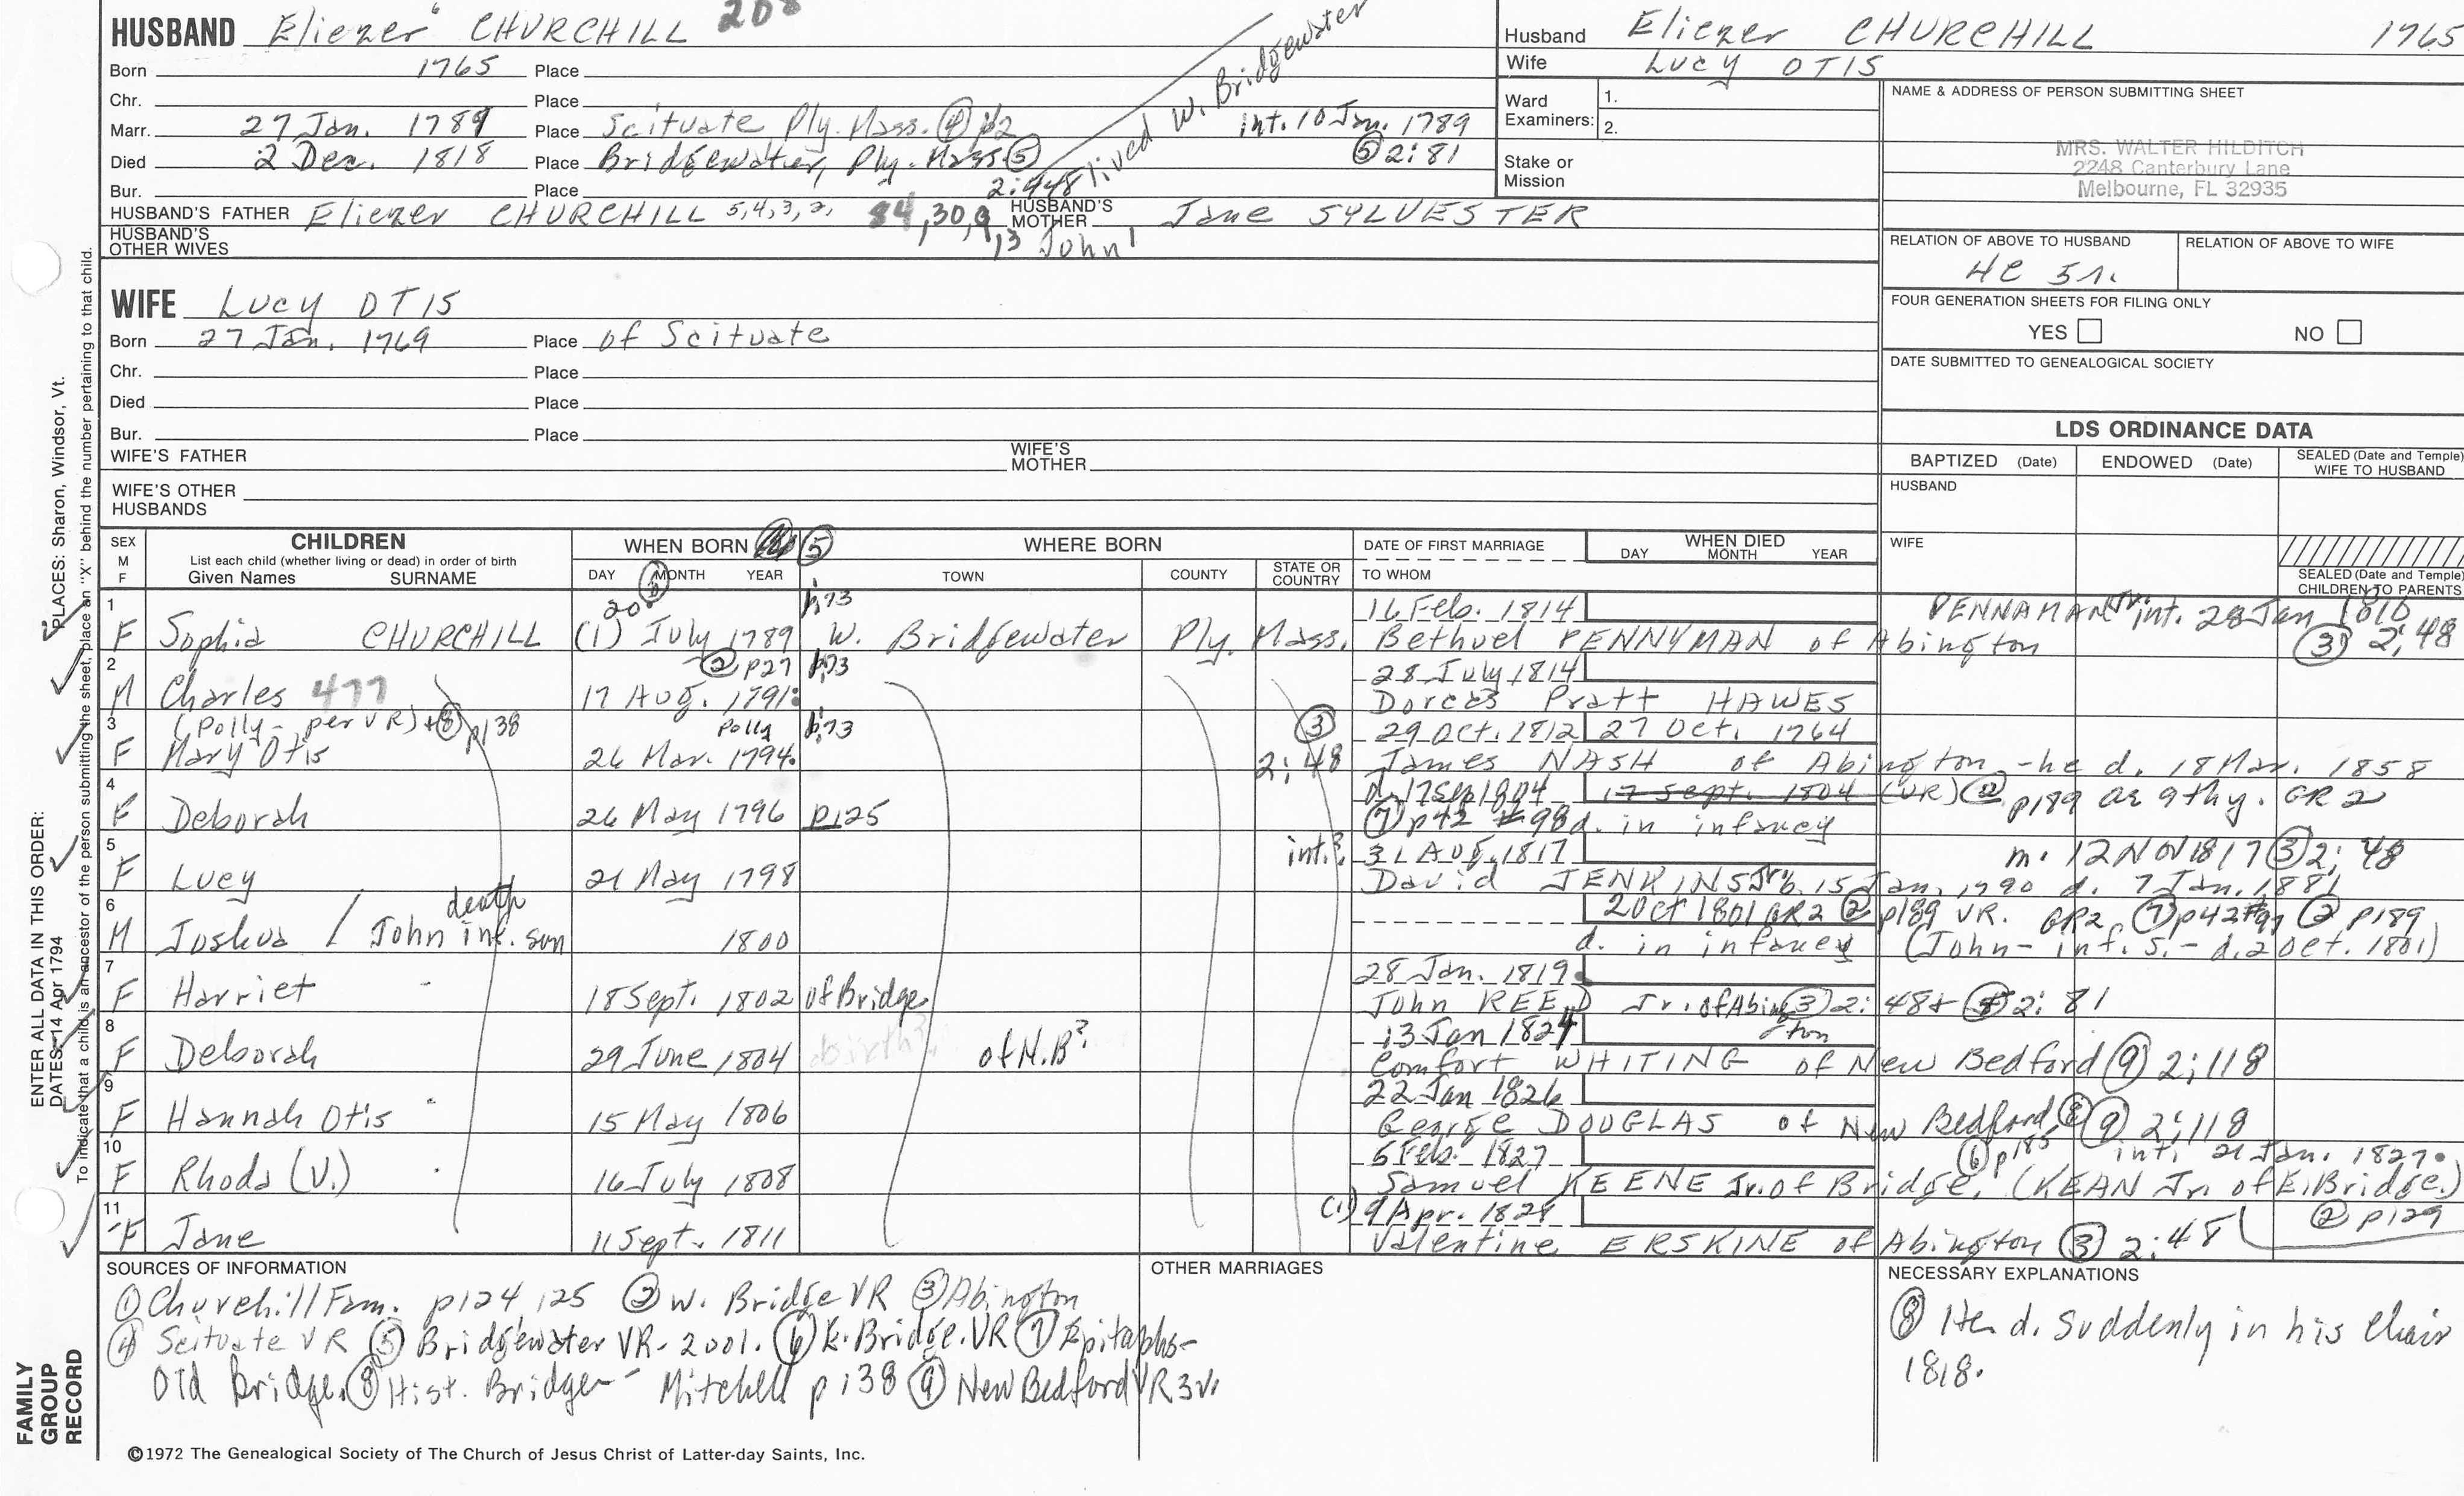 HUSBAND Eliezer 6 CHURCHILL 208
Born 1765 Place
Chr. Place
Marr. 27 Jan. 1789 Place Scituate Ply. Mass. ④ p2 int. 10 Jan. 1789
Died 2 Dec. 1818 Place Bridgewater, Ply. Mass ⑤ ⑤ 2:81
Bur. Place 2:448
lived W. Bridgewater
HUSBAND'S FATHER Eliezer CHURCHILL 5,4,3,2, 84,30,9,13 John 1 HUSBAND'S MOTHER Jane SYLVESTER
HUSBAND'S OTHER WIVES
Husband Eliezer CHURCHILL 1765
Wife Lucy OTIS
Ward Examiners: 1.
2.
Stake or Mission
NAME & ADDRESS OF PERSON SUBMITTING SHEET
MRS. WALTER HILDITCH
2248 Canterbury Lane
Melbourne, FL 32935
RELATION OF ABOVE TO HUSBAND RELATION OF ABOVE TO WIFE
FOUR GENERATION SHEETS FOR FILING ONLY
YES NO
DATE SUBMITTED TO GENEALOGICAL SOCIETY
WIFE Lucy OTIS
Born 27 Jan. 1769 Place of Scituate
Chr. Place
Died Place
Bur. Place
WIFE'S FATHER WIFE'S MOTHER
WIFE'S OTHER HUSBANDS
LDS ORDINANCE DATA
BAPTIZED (Date) ENDOWED (Date) SEALED (Date and Temple) WIFE TO HUSBAND
HUSBAND
WIFE
SEALED (Date and Temple) CHILDREN TO PARENTS
SEX M F CHILDREN WHEN BORN ⑤ WHERE BORN DATE OF FIRST MARRIAGE WHEN DIED
List each child (whether living or dead) in order of birth DAY MONTH YEAR
Given Names SURNAME DAY MONTH YEAR TOWN COUNTY STATE OR COUNTRY TO WHOM
1 20 ⑥ p.73 16 Feb. 1814 PENNAMAN Jr. int. 28 Jan 1810
F Sophia CHURCHILL (1) July 1789 W. Bridgewater Ply. Mass. Bethuel PENNYMAN of Abington ③ 2:48
2 ② p27 p.73 28 July 1814
M Charles 477 17 Aug. 1791 Dorcas Pratt HAWES
3 (Polly - per VR) + ⑧ p138 Polly p.73 ③ 29 Oct. 1812 27 Oct. 1764
F Mary Otis 26 Mar. 1794 2:48 James NASH of Abington - he d. 18 Mar. 1858
4 d. 17 Sep 1804 17 Sept. 1804 (VR) ② p189 ae 9thy. GR 2
F Deborah 26 May 1796 p125 ⑦ p42 #98 d. in infancy
5 int? 31 Aug. 1817 m. 12 Nov 1817 ③ 2:48
F Lucy 21 May 1798 David JENKINS Jr. b. 15 Jan. 1790 d. 7 Jan. 1881
6 death 2 Oct 1801 GR2 ② p189 VR. GR2 ⑦ p42 #97 ② p189
M Joshua / John inf. son 1800 d. in infancy (John - inf. s. - d. 2 Oct. 1801)
7 28 Jan. 1819
F Harriet 18 Sept. 1802 of Bridge. John REED Jr. of Abington ③ 2:48 + ⑤ 2:81
8 13 Jan 1824
F Deborah 29 June 1804 birth? of N.B? Comfort WHITING of New Bedford ⑨ 2:118
9 22 Jan 1826
F Hannah Otis 15 May 1806 George DOUGLAS of New Bedford ⑧ ⑨ 2:118
10 6 Feb. 1827 ⑥ p185 int. 21 Jan. 1827
F Rhoda (V.) 16 July 1808 Samuel KEENE Jr. of Bridge. (KEAN Jr. of E. Bridge.)
11 (1) 9 Apr. 1828 ② p129
F Jane 11 Sept. 1811 Valentine ERSKINE of Abington ③ 2:48
SOURCES OF INFORMATION
① Churchill Fam. p124, 125 ② W. Bridge VR ③ Abington
④ Scituate VR ⑤ Bridgewater VR - 2001. ⑥ E. Bridge. VR ⑦ Epitaphs -
Old Bridge. ⑧ Hist. Bridge - Mitchell p138 ⑨ New Bedford VR 3v.
OTHER MARRIAGES
NECESSARY EXPLANATIONS
⑧ He d. suddenly in his chair
1818.
©1972 The Genealogical Society of The Church of Jesus Christ of Latter-day Saints, Inc.
FAMILY GROUP RECORD
ENTER ALL DATA IN THIS ORDER:
DATES: 14 Apr 1794
PLACES: Sharon, Windsor, Vt.
To indicate that a child is an ancestor of the person submitting the sheet, place an "X" behind the number pertaining to that child.